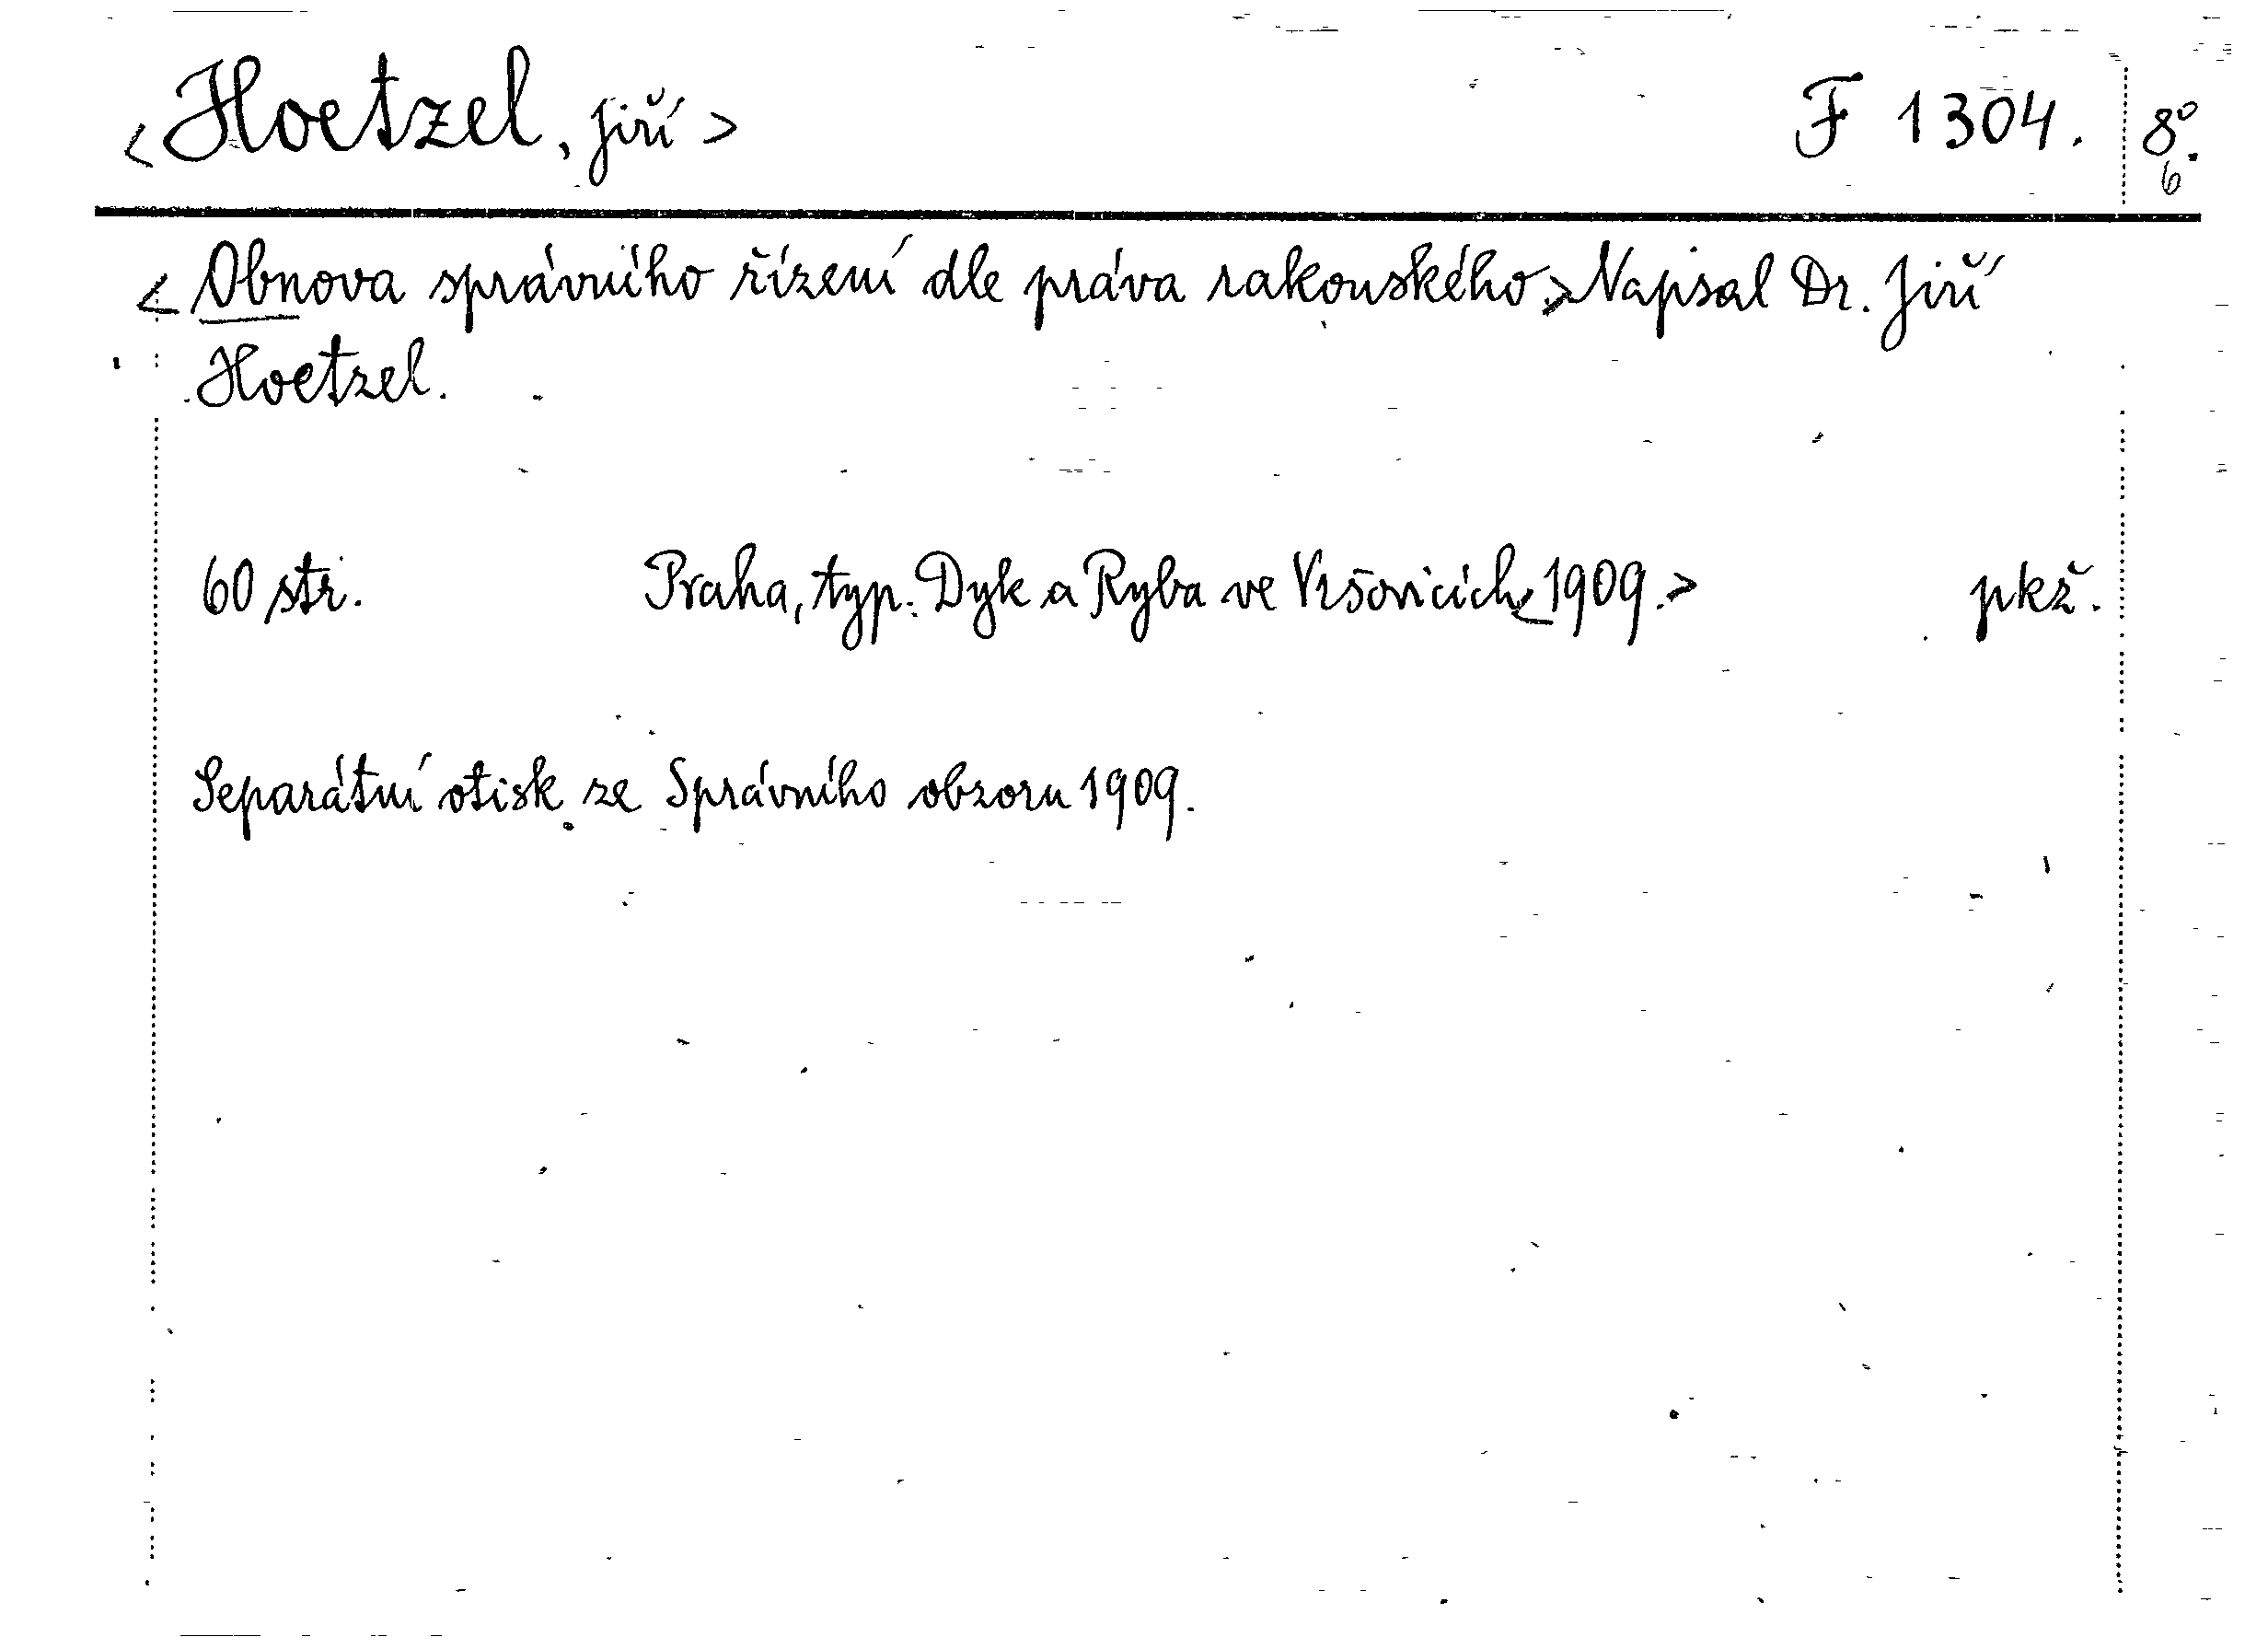 <Hoetzel, Jiří> F 1304. 8°.
6
<Obnova správního řízení dle práva rakouského.> Napsal Dr. Jiří
Hoetzel.
60 str. Praha, typ. Dyk a Ryba ve Vršovicích <1909.> pkž.
Separátní otisk ze Správního obzoru 1909.